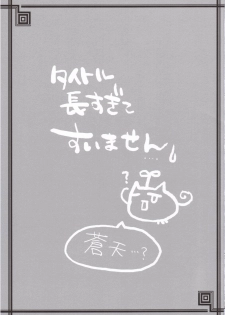 タイトル
長すぎて
すいません…。
?
蒼天…?